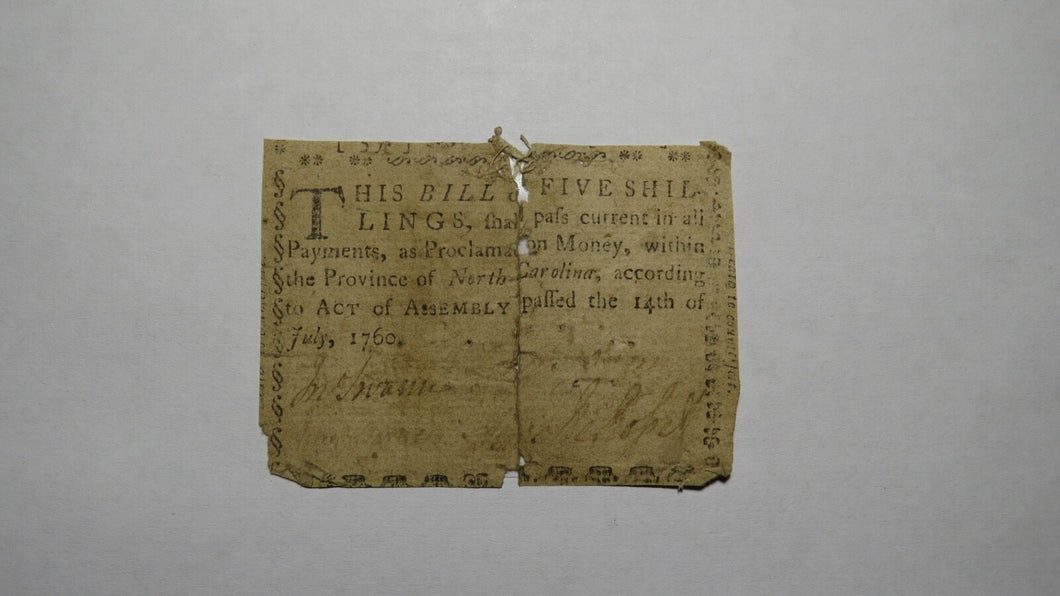 THIS BILL of FIVE SHIL-
LINGS, ſhall paſs current in all
Payments, as Proclamation Money, within
the Province of North-Carolina, according
to ACT of ASSEMBLY paſſed the 14th of
July, 1760.
Jno Swann